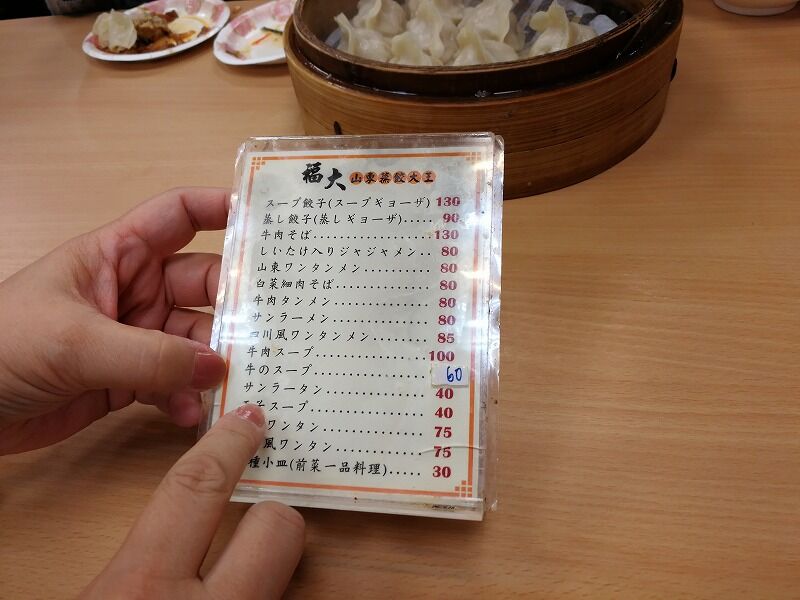 福大 山東蒸餃大王
スープ餃子(スープギョーザ) 130
蒸し餃子(蒸しギョーザ)..... 90
牛肉そば..................130
しいたけ入りジャジャメン.. 80
山東ワンタンメン.......... 80
白菜細肉そば.............. 80
牛肉タンメン.............. 80
サンラーメン.............. 80
四川風ワンタンメン........ 85
牛肉スープ................100
牛のスープ................ 60
サンラータン.............. 40
スープ.............. 40
ワンタン.............. 75
風ワンタン.............. 75
種小皿(前菜一品料理)..... 30